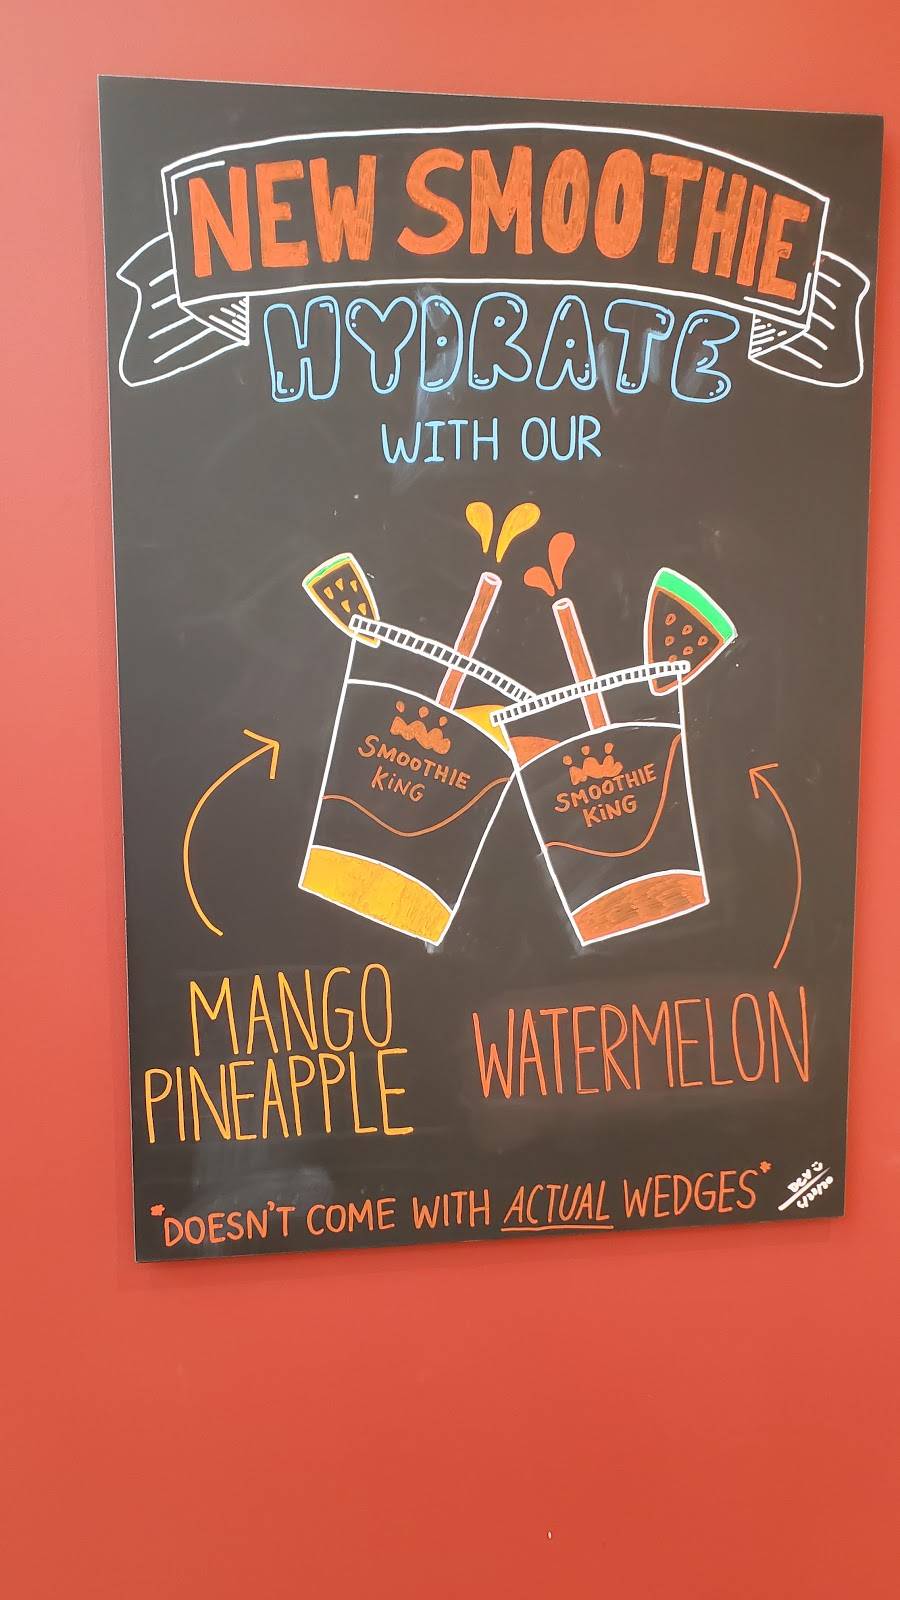 NEW SMOOTHIE
HYDRATE
WITH OUR
SMOOTHIE
KING
SMOOTHIE
KING
MANGO
PINEAPPLE
WATERMELON
*DOESN'T COME WITH ACTUAL WEDGES*